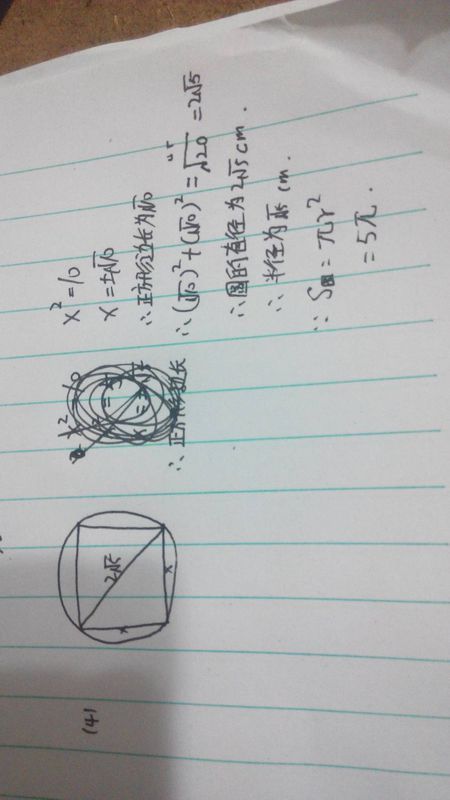 (4)
2√5
x
x
x² = 10
∴ 正方形边长
x² = 10
x = ±√10
∴ 正方形边长为√10
∴ (√10)² + (√10)² = √20 = 2√5
∴ 圆的直径为 2√5 cm.
∴ 半径为 √5 cm.
∵ S圆 = πr²
= 5π.